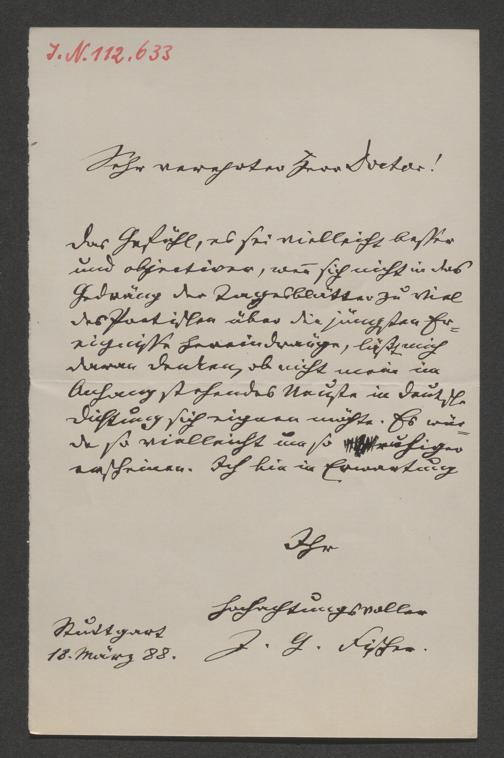 J.N. 112.633
Sehr verehrter Herr Doctor!
Das Gefühl, es sei vielleicht besser
und objectiver, wenn sich nicht in das
Gedräng der Tagesblätter zu viel
des Poetischen über die jüngsten Er=
eignisse hereindränge, läßt mich
daran denken, ob nicht mein im
Anhang stehendes Neuste in deutsche
Dichtung sich eignen möchte. Es wür=
de so vielleicht um so ruhiger
erscheinen. Ich bin in Erwartung
Ihr
hochachtungsvoller
J. G. Fischer.
Stuttgart
18. März 88.